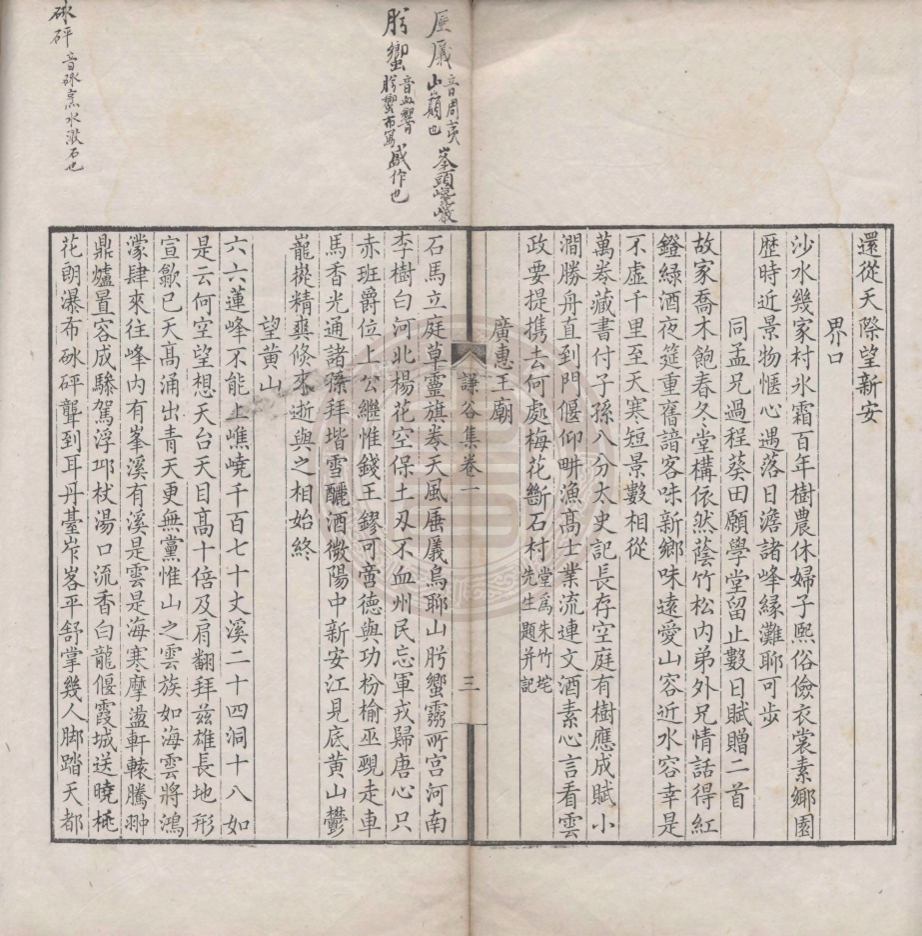 還從天際望新安
界口
沙水幾家村氷霜百年樹農休婦子熙俗儉衣裳素鄉園
歷時近景物愜心遇落日澹諸峰緣灘聊可步
同孟兄過程葵田願學堂留止數日賦贈二首
故家喬木飽春冬堂構依然蔭竹松內弟外兄情話得紅
鐙綠酒夜筵重舊諳客味新鄉味遠愛山容近水容幸是
不虛千里至天寒短景數相從
萬卷藏書付子孫八分太史記長存空庭有樹應成賦小
澗勝舟直到門偃仰畊漁高士業流連文酒素心言看雲
政要提携去何處梅花斷石村堂爲朱竹垞先生題并記
廣惠王廟
謙谷集卷一
三
石馬立庭草靈旗卷天風厜㕒烏聊山肸蠁靈所宮河南
李樹白河北楊花空保土刃不血州民忘軍戎歸唐心只
赤班爵位上公繼惟錢王鏐可啻德與功枌榆巫覡走車
馬香光通諸孫拜堦雪釃酒微陽中新安江見底黃山鬱
巃嵸精爽倏來逝與之相始終
望黃山
六六蓮峰不能上嶕嶢千百七十丈溪二十四洞十八如
是云何空望想天台天目高十倍及肩翻拜茲雄長地形
宣歙已天高涌出青天更無黨惟山之雲族如海雲將鴻
濛肆來往峰內有峯溪有溪是雲是海寒摩盪軒轅騰翀
鼎爐置容成驂駕浮邛杖湯口流香白龍偃霞城送曉桃
花朗瀑布砅砰聾到耳丹臺岝峉平舒掌幾人脚踏天都
厜㕒音周夷山巔也
肸蠁音肸響
盛作也
砅砰音砅烹水激石也